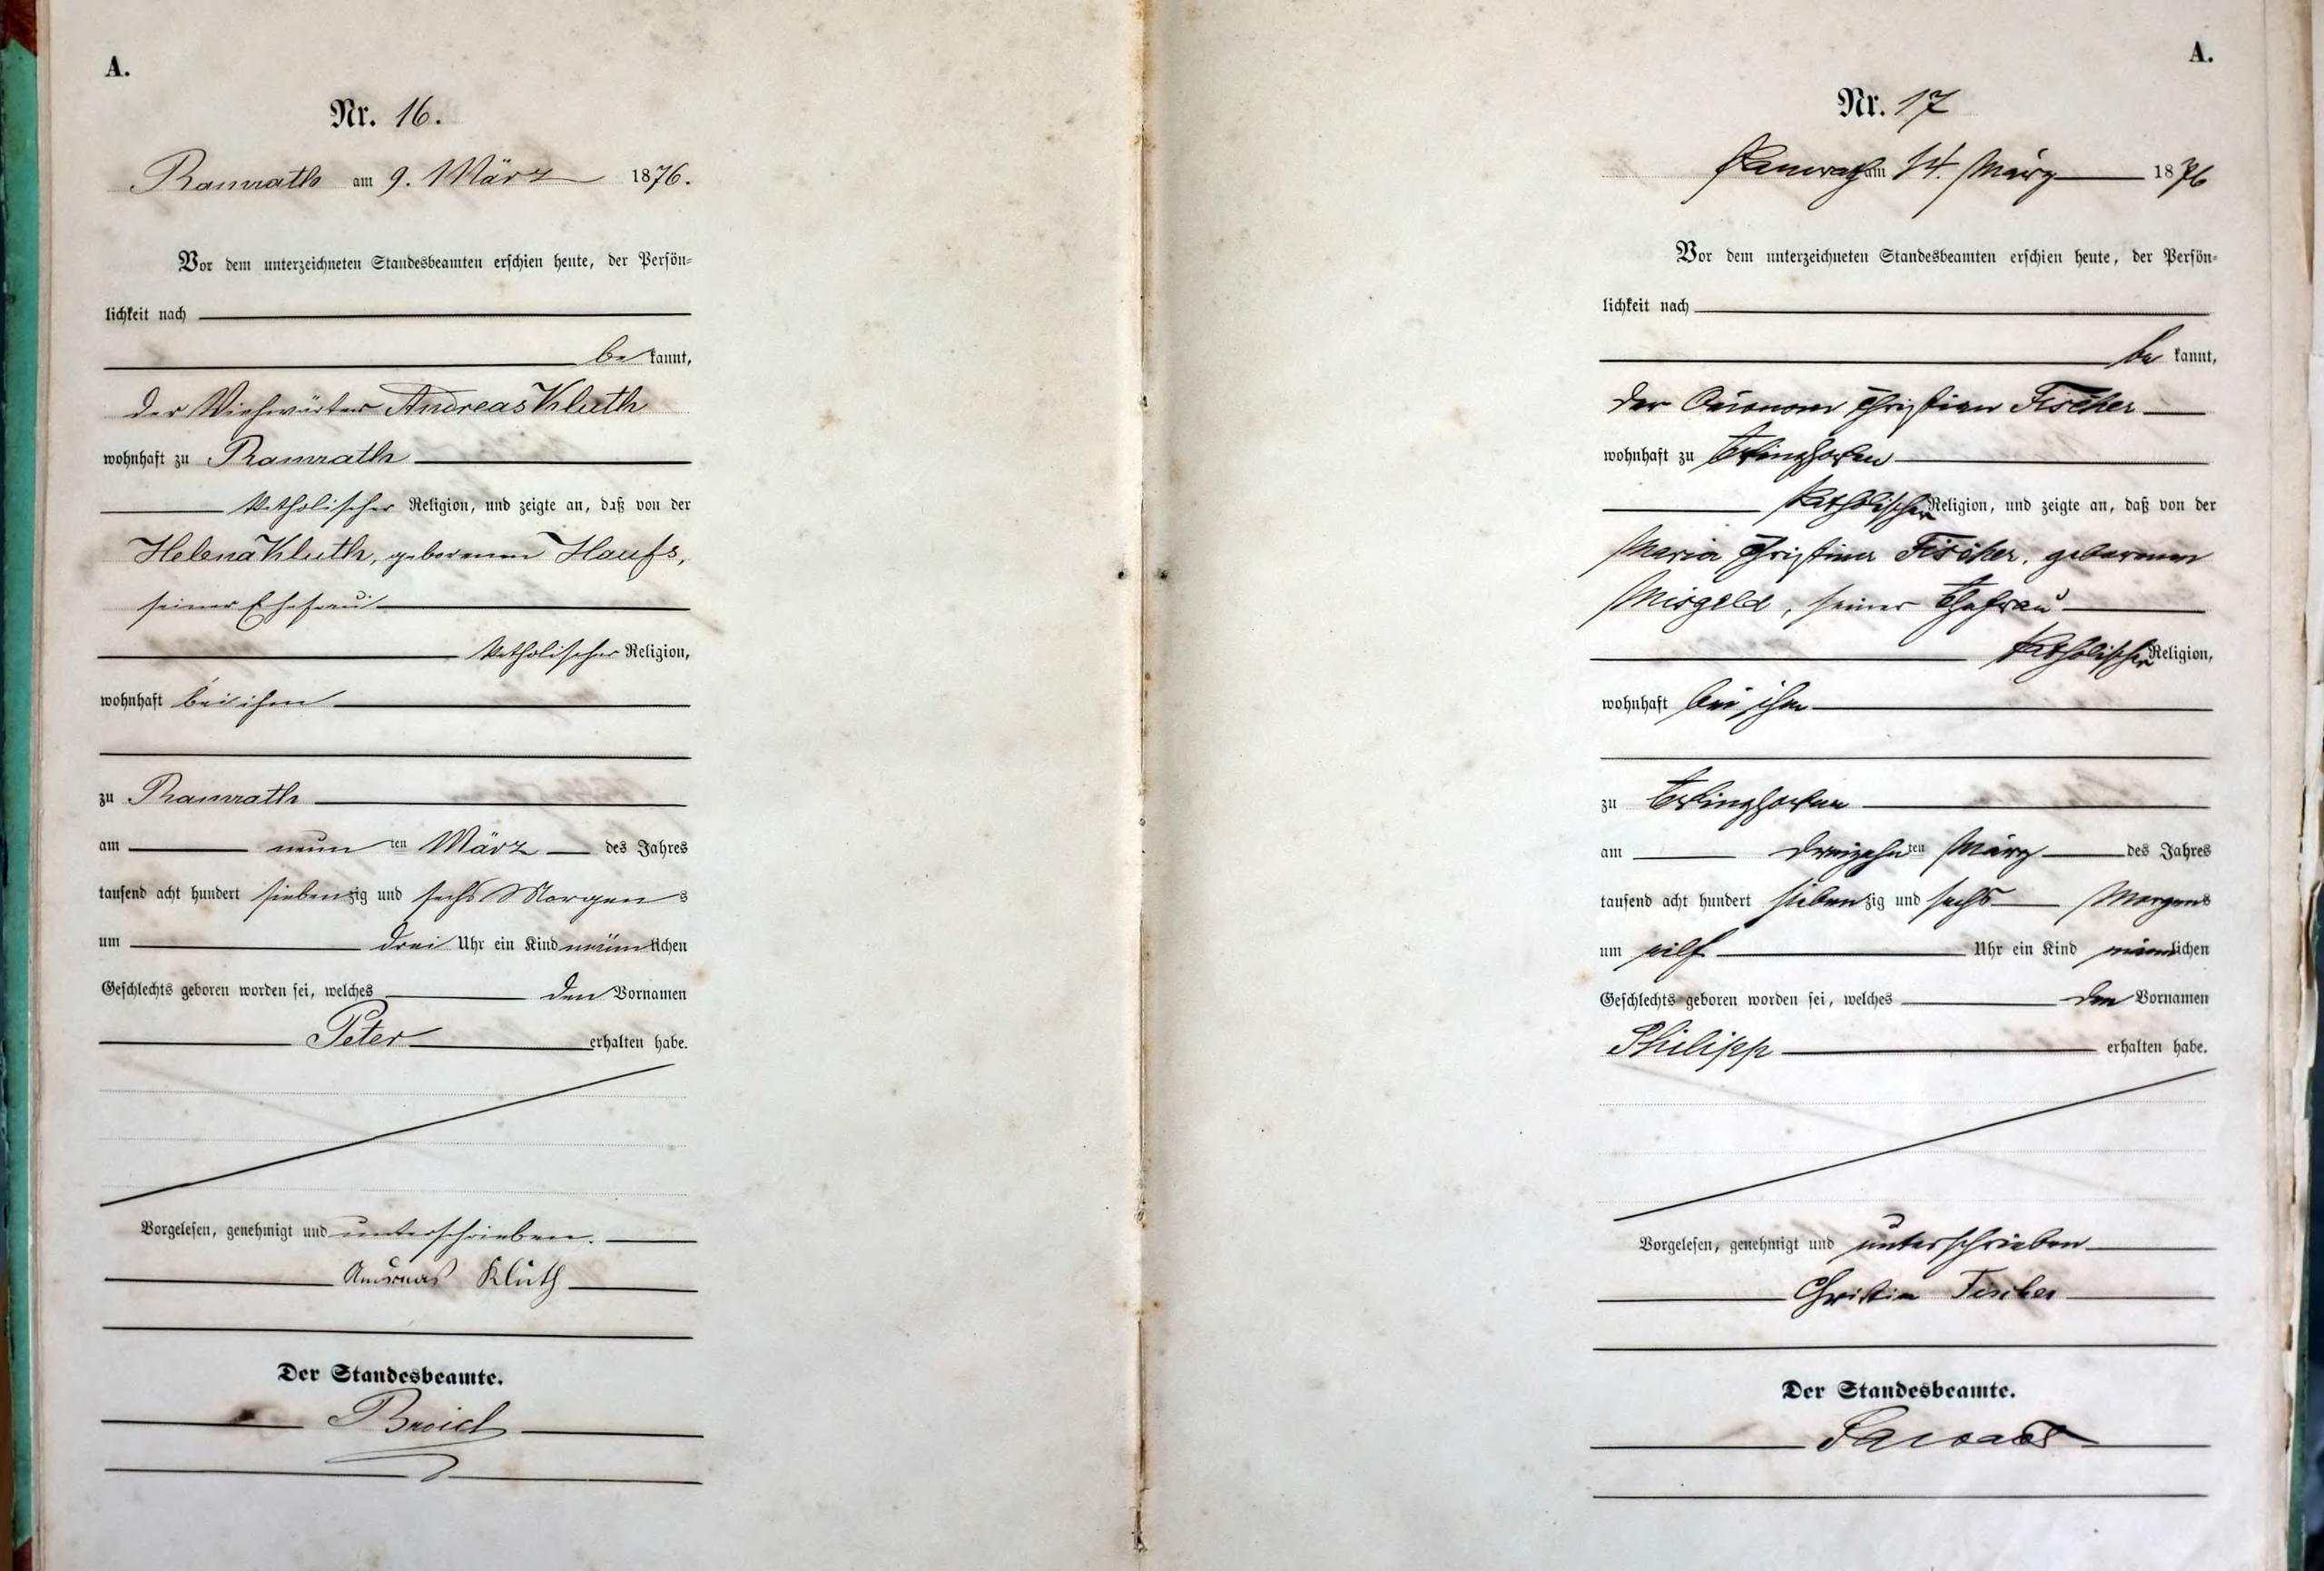 A.
Nr. 16.
Ramrath am 9. März 1876.
Vor dem unterzeichneten Standesbeamten erschien heute, der Persön-
lichkeit nach
be kannt,
der Viehwärter Andreas Kluth
wohnhaft zu Ramrath
katholischer Religion, und zeigte an, daß von der
Helena Kluth, geborenen Haufs,
seiner Ehefrau
katholischer Religion,
wohnhaft bei ihm
zu Ramrath
am neun ten März des Jahres
tausend acht hundert sieben zig und sechs Morgen s
um drei Uhr ein Kind männ lichen
Geschlechts geboren worden sei, welches den Vornamen
Peter erhalten habe.
Vorgelesen, genehmigt und unterschrieben.
Andreas Kluth
Der Standesbeamte.
Broich
A.
Nr. 17
Ramrath am 14. März 1876
Vor dem unterzeichneten Standesbeamten erschien heute, der Persön-
lichkeit nach
be kannt,
der Oeconom Christian Fischer
wohnhaft zu Evinghoven
katholischer Religion, und zeigte an, daß von der
Maria Christina Fischer, geborenen
Misgeld, seiner Ehefrau
katholischer Religion,
wohnhaft bei ihm
zu Evinghoven
am dreizehn ten März des Jahres
tausend acht hundert sieben zig und sechs Morgens
um eilf Uhr ein Kind männ lichen
Geschlechts geboren worden sei, welches den Vornamen
Philipp erhalten habe.
Vorgelesen, genehmigt und unterschrieben
Christian Fischer
Der Standesbeamte.